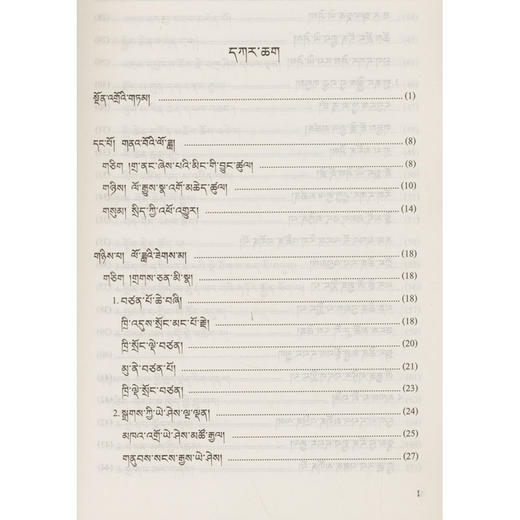 དཀར་ཆག
སྔོན་འགྲོའི་གཏམ། (1)
དང་པོ། གནའ་བོའི་ལོ་ཟླ། (8)
གཅིག །གྲ་ནང་ཞེས་པའི་མིང་གི་བྱུང་ཚུལ། (8)
གཉིས། ལོ་རྒྱུས་སྣ་འགོ་མཆེད་ཚུལ། (10)
གསུམ། སྲིད་ཀྱི་འཕོ་འགྱུར། (14)
གཉིས་པ། ལོ་ཟླའི་ཟེགས་མ། (18)
གཅིག །གྲགས་ཅན་མི་སྣ། (18)
1. བཙན་པོ་ཆེ་བཞི། (18)
ཁྲི་འདུས་སྲོང་མང་པོ་རྗེ། (18)
ཁྲི་སྲོང་ལྡེ་བཙན། (20)
མུ་ནེ་བཙན་པོ། (21)
ཁྲི་ལྡེ་སྲོང་བཙན། (23)
2. སྒྲགས་ཀྱི་ཡེ་ཤེས་ལྔ་ལྡན། (24)
མཁའ་འགྲོ་ཡེ་ཤེས་མཚོ་རྒྱལ། (25)
གནུབས་སངས་རྒྱས་ཡེ་ཤེས། (27)
1